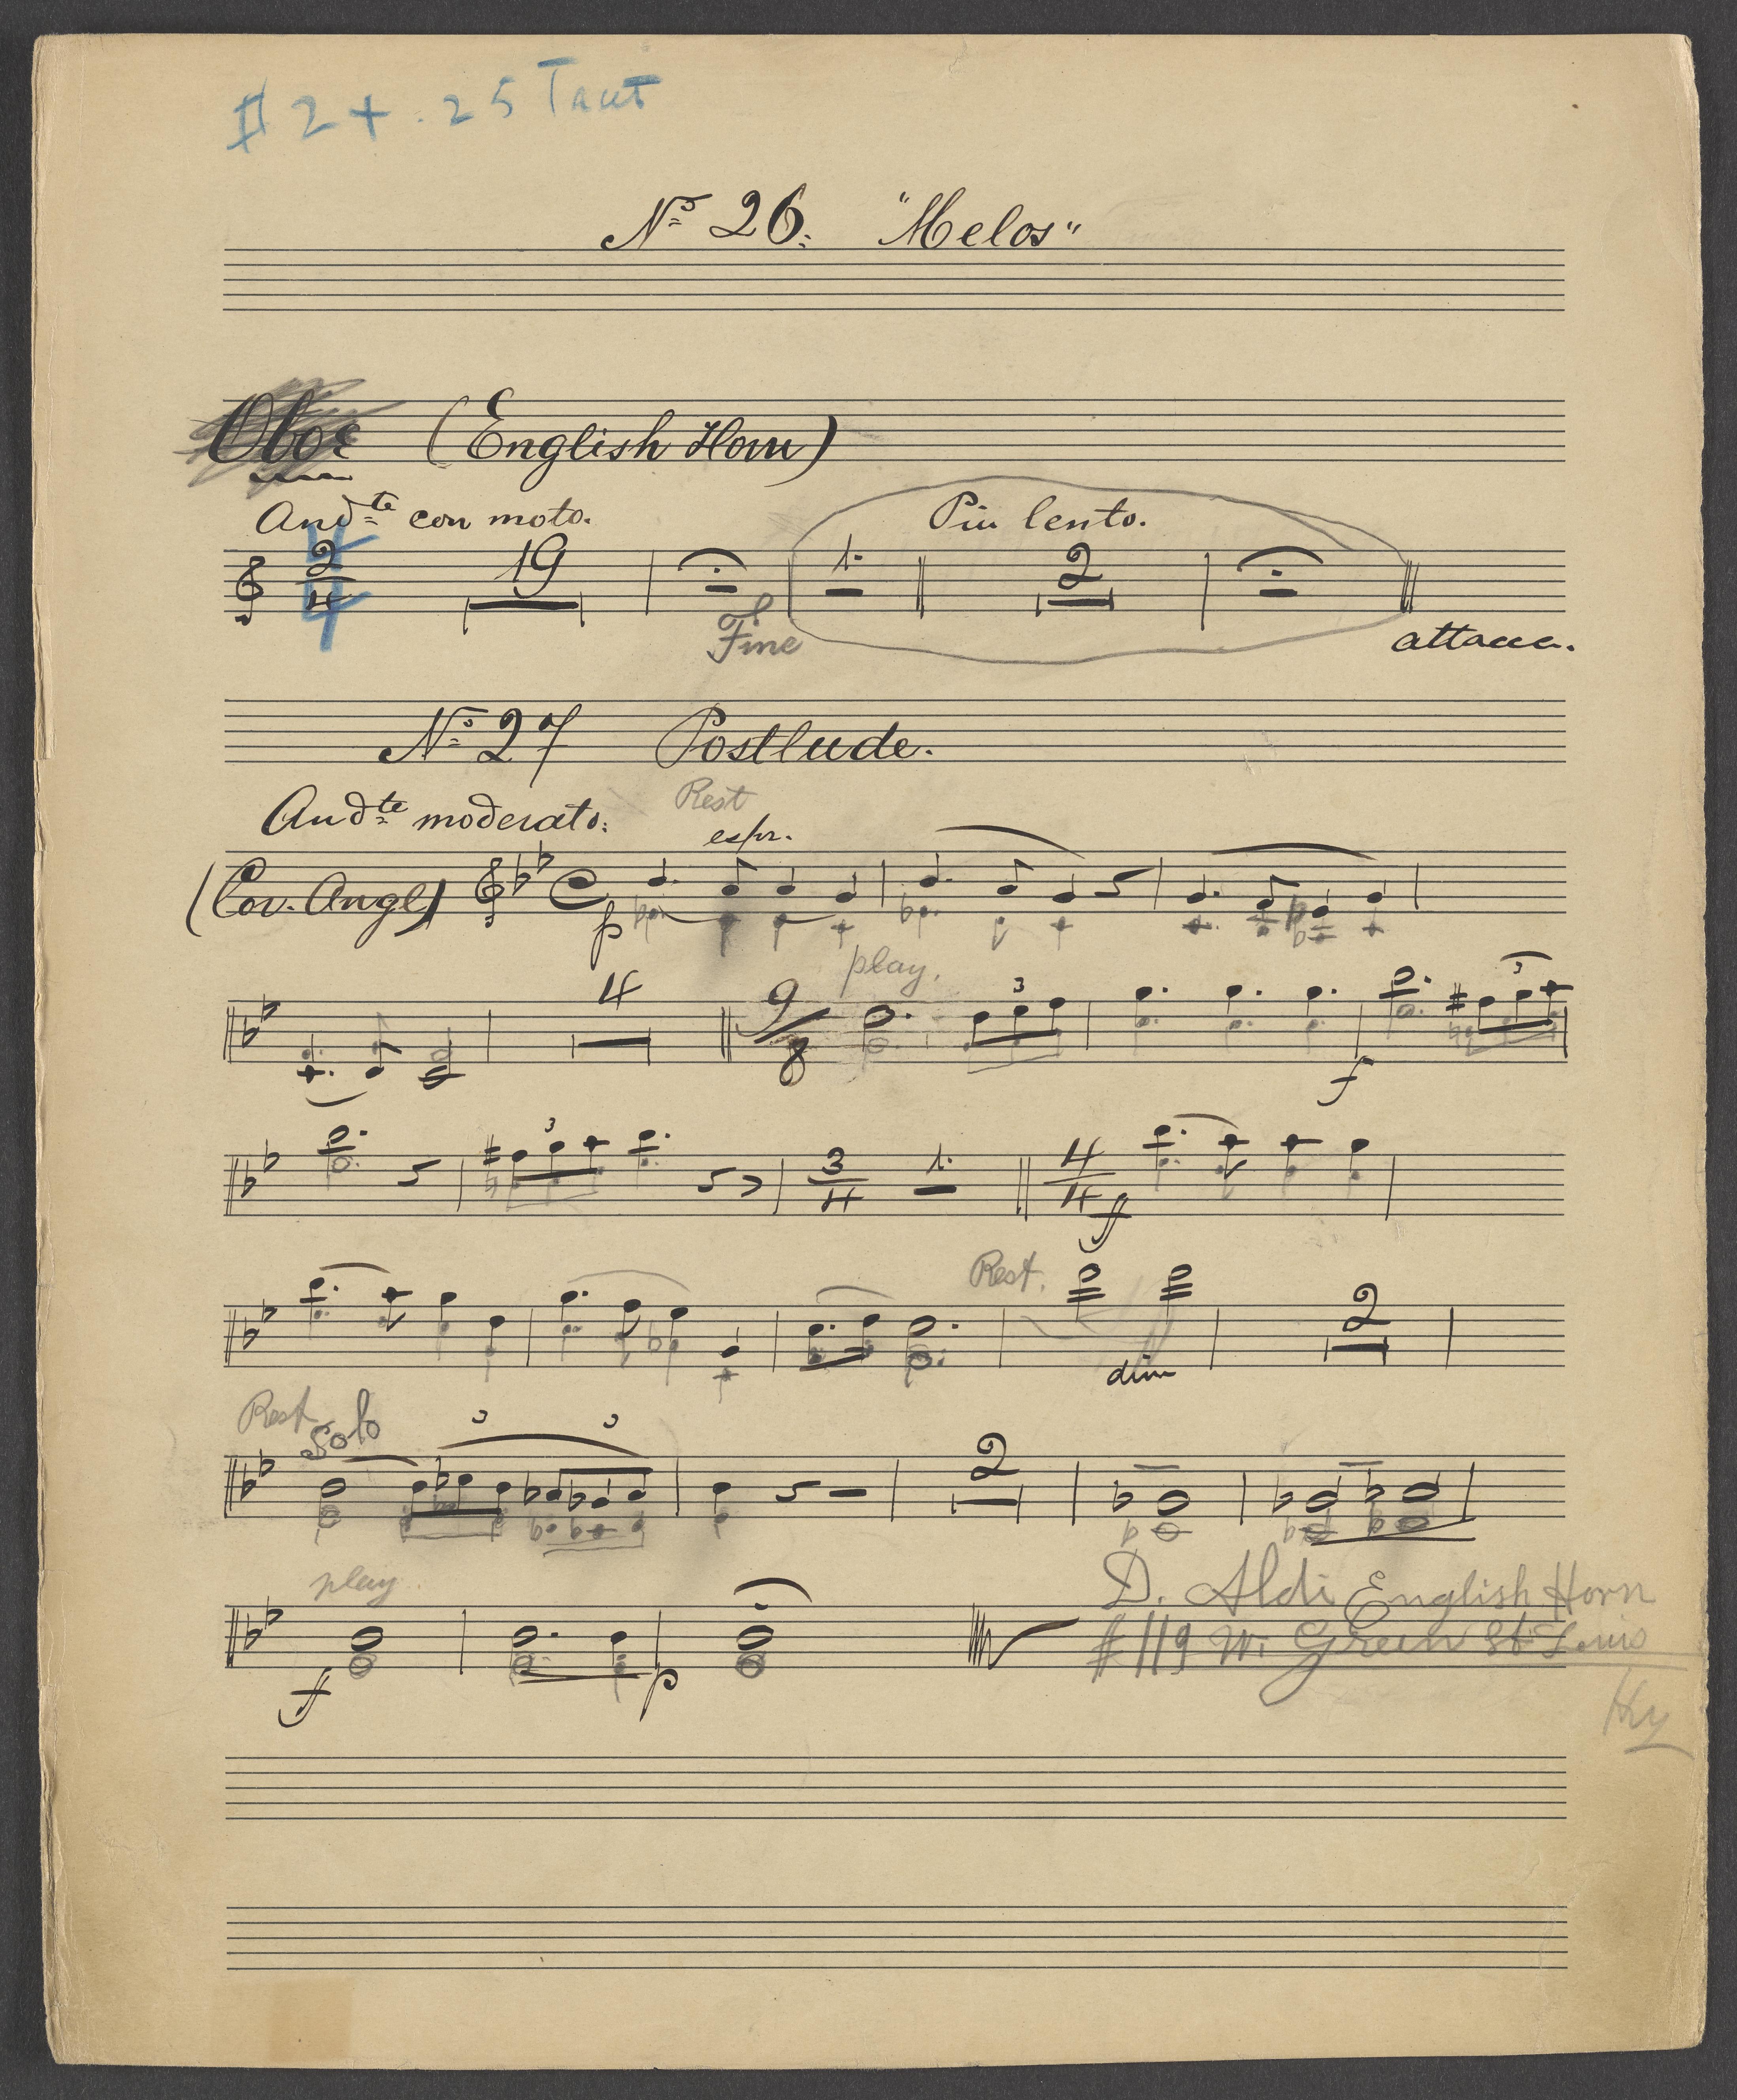 $ 2 + .25 Taut
No 26. "Melos"
Oboe (English Horn)
Andte con moto. Piu lento.
2 4 4 4 19 1. 2
Fine attacca.
No 27 Postlude.
Andte moderato. Rest
espr.
(Cor. Angl) C p
4 9 8 play. 3 f 3
3 3 4 1. 4 4 ff
Rest. dim 2
Rest Solo 3 3 2
play f p
D. Aldi English Horn
#119 W. Green St Louis
Ky